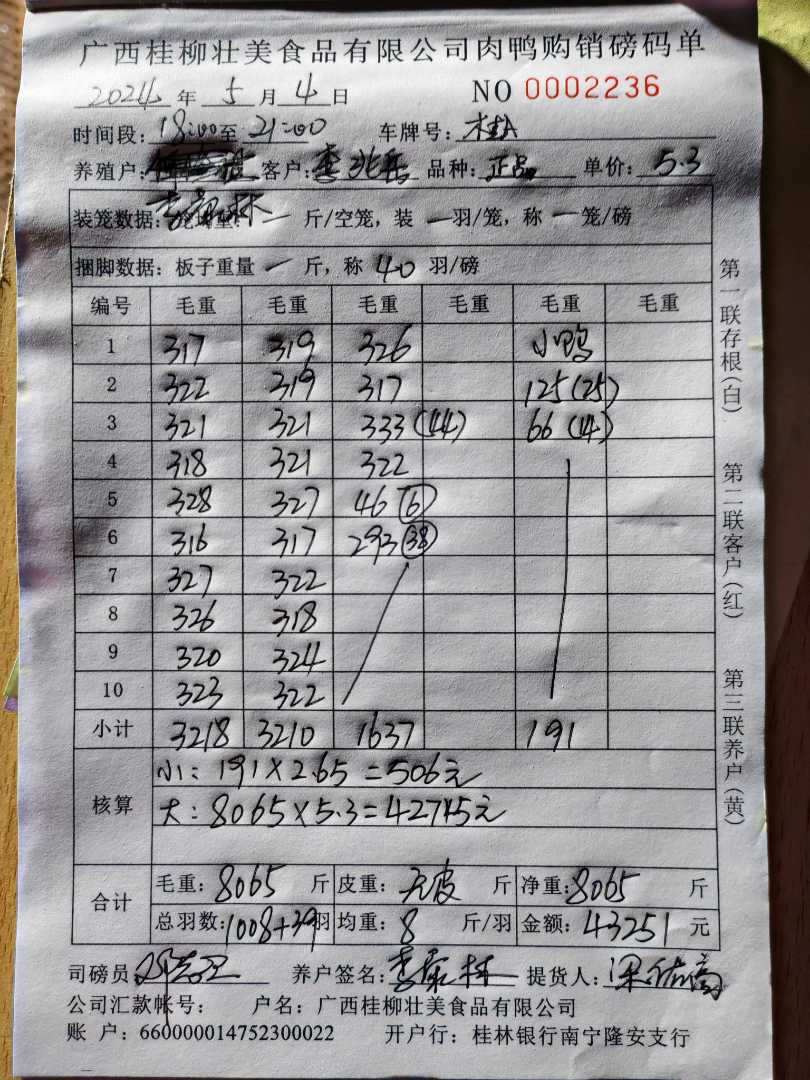 广西桂柳壮美食品有限公司肉鸭购销磅码单
2024年 5月 4日 NO 0002236
时间段: 18:00至 21:00 车牌号: 桂A
养殖户: 客户: 李兆岳 品种: 正品 单价: 5.3
李 林
装笼数据: 一 斤/空笼, 装 一 羽/笼, 称 一 笼/磅
捆脚数据: 板子重量 一 斤, 称 40 羽/磅
编号 毛重 毛重 毛重 毛重 毛重 毛重
1 317 319 326 小鸭
2 322 319 317 125(25)
3 321 321 333(44) 66(14)
4 318 321 322
5 328 327 46(6)
6 316 317 293(38)
7 327 322
8 326 318
9 320 324
10 323 322
小计 3218 3210 1637 191
核算
小: 191×2.65=506元
大: 8065×5.3=42745元
合计
毛重: 8065 斤 皮重: 无皮 斤 净重: 8065 斤
总羽数: 1008+39羽 均重: 8 斤/羽 金额: 43251 元
司磅员: 养户签名: 李 林 提货人: 梁
公司汇款帐号: 户名: 广西桂柳壮美食品有限公司
账 户: 660000014752300022 开户行: 桂林银行南宁隆安支行
第一联存根(白)
第二联客户(红)
第三联养户(黄)